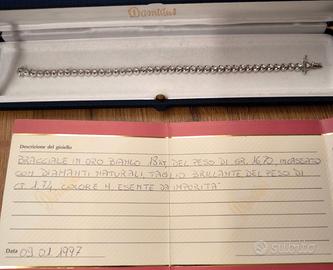 Damiani
Descrizione del gioiello
BRACCIALE IN ORO BIANCO 18KT DEL PESO DI GR. 16,70, INCASSATO
CON DIAMANTI NATURALI, TAGLIO BRILLANTE DEL PESO DI
CT 1.74 COLORE H. ESENTE DA IMPURITA'
Data 09.01.1997
subito